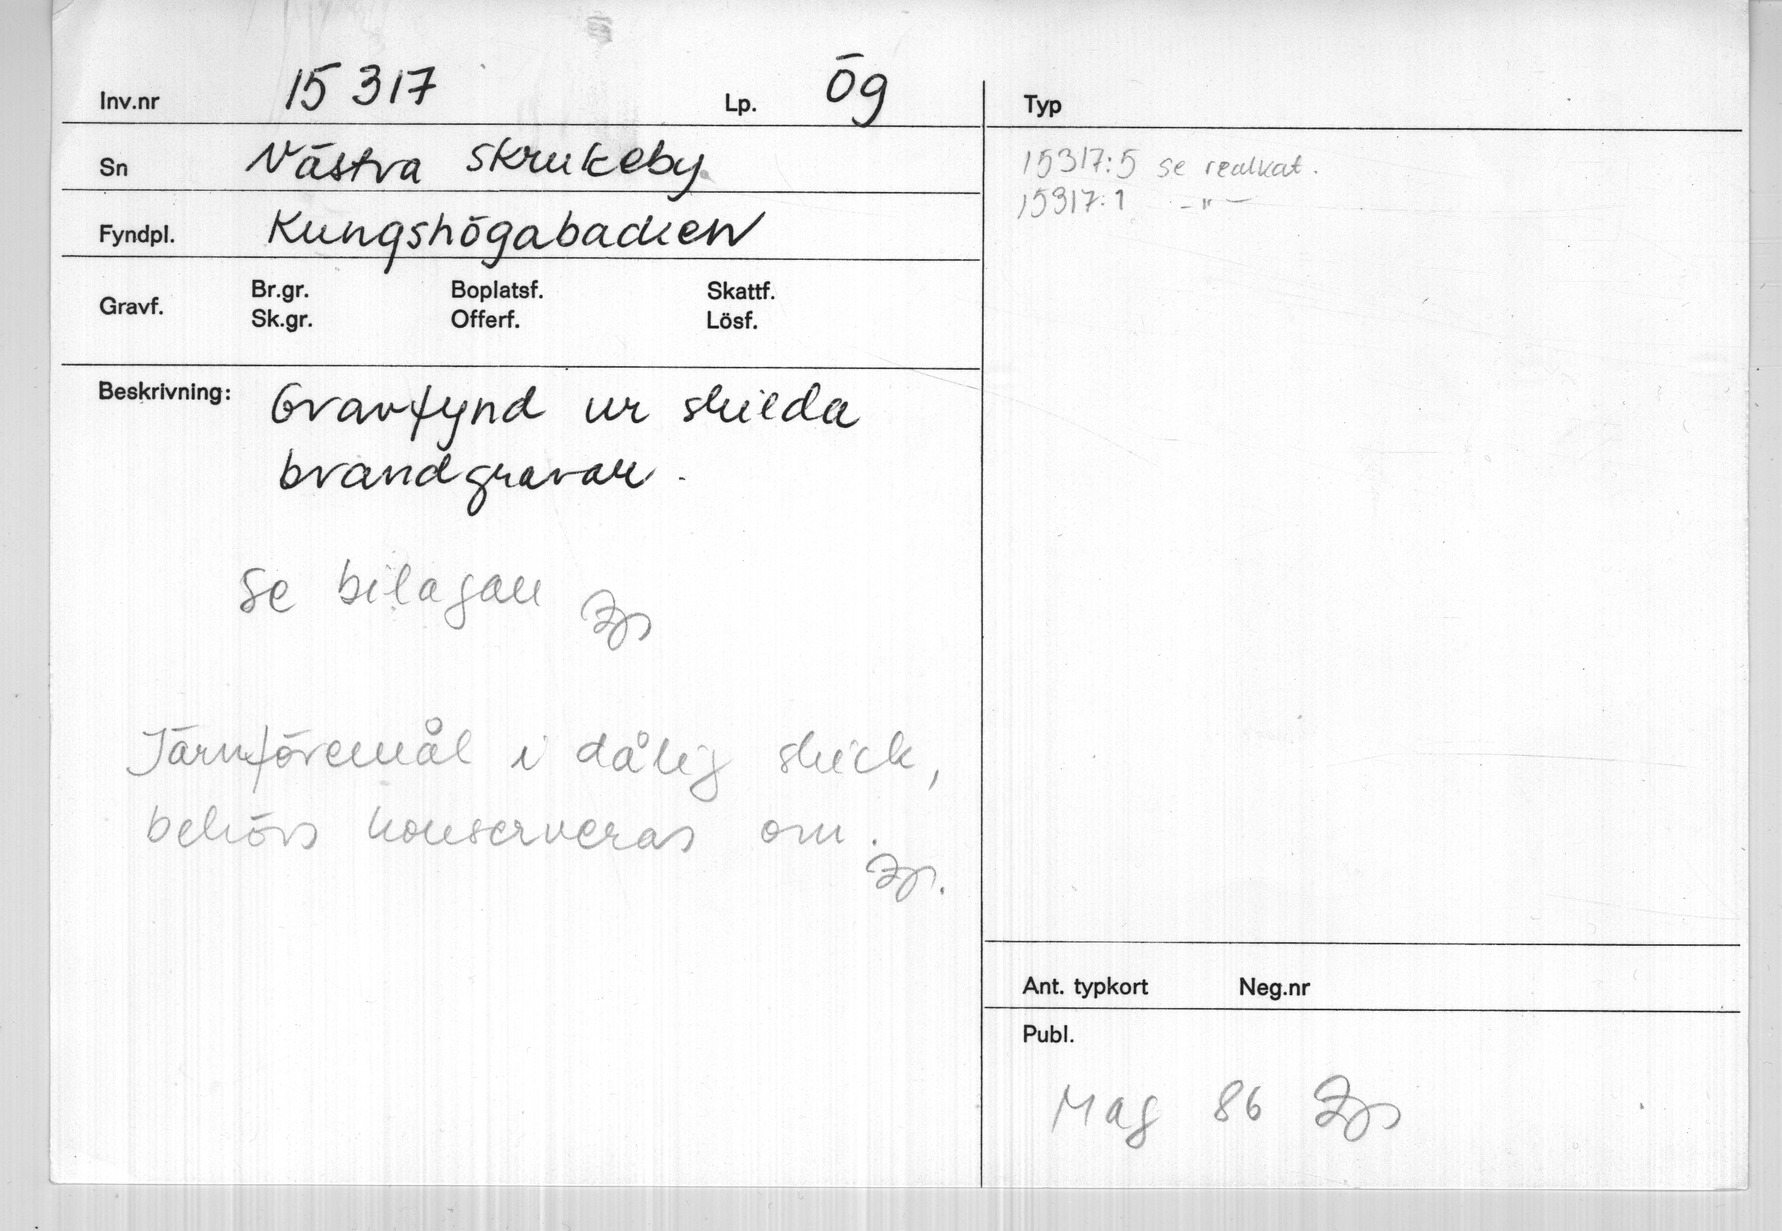 Inv.nr 15 317 Lp. Ög
Sn Västra Skrukeby
Fyndpl. Kungshögabacken
Gravf. Br.gr. Boplatsf. Skattf.
Sk.gr. Offerf. Lösf.
Beskrivning: Gravfynd ur skilda
brandgravar.
Se bilagan
Järnföremål i dålig skick,
behövs konserveras om.
Typ
15317:5 se realkat.
15317:1 -"-
Ant. typkort Neg.nr
Publ.
Mag 86